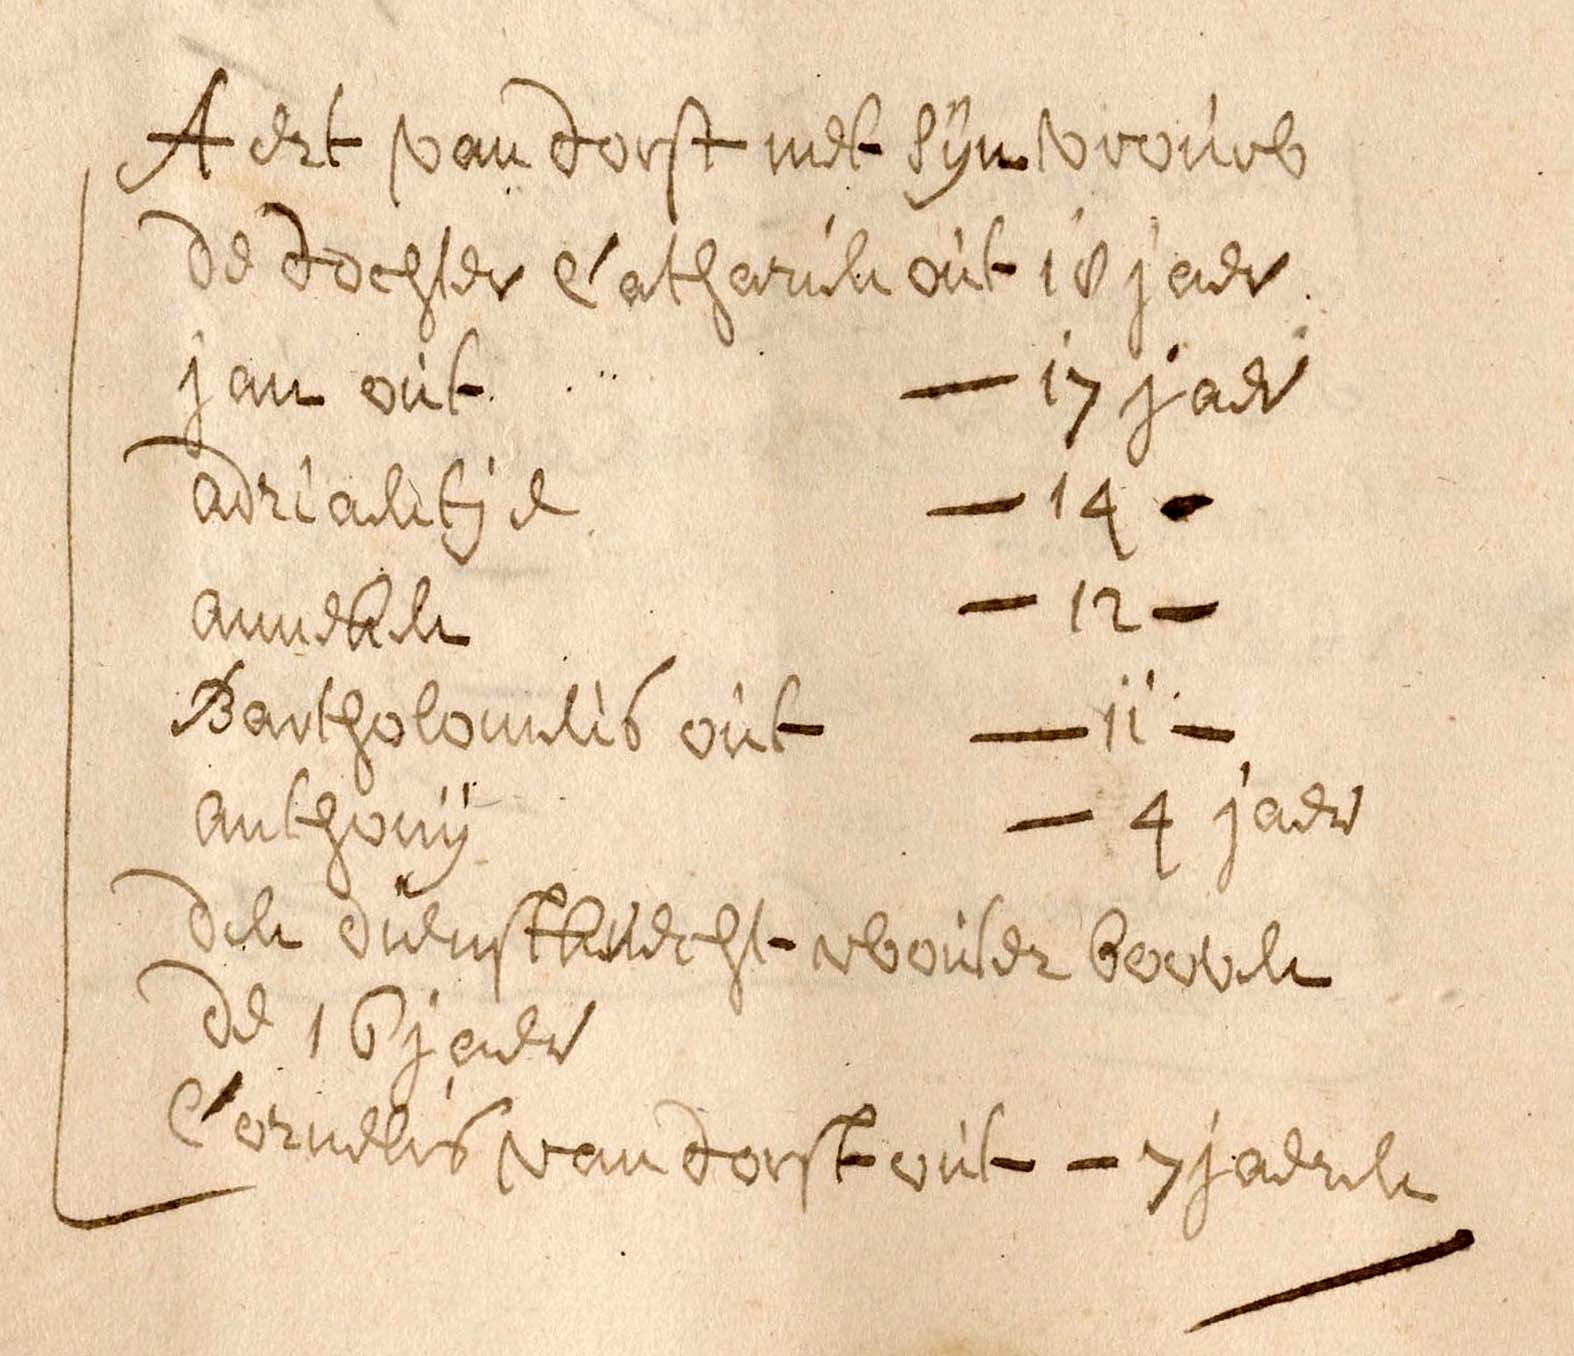 Aert van dorst met sijn vrouw
de dochter Catharin out 18 jaer
jan out — 17 jaer
adriaentje — 14 -
anneken — 12 —
Bartholomeus out — 11 —
anthonij — 4 jaer
den dienstknecht wouter boven
de 16 jaer
Cornelis van dorst out — 7 jaeren